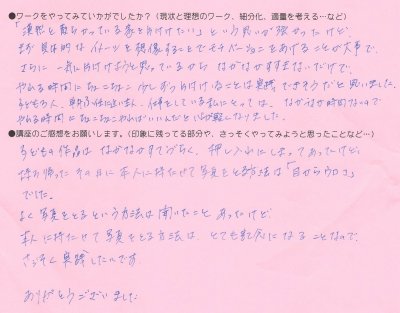 ●ワークをやってみていかがでしたか？（現状と理想のワーク、細分化、適量を考える…など）
「漠然と散らかっている家を片付けたい」という思いが強かったけど、
まず具体的なイメージを想像することでモチベーションをあげることが大事で、
さらに一気に片付けようと思っているから なかなかすすまないだけで、
やれる時間にちょこちょこ 少しずつ片付けることは実践できそうだと思いました。
仕事をしている私にとっては、なかなか時間ないので
やれる時間にちょこちょこやればいいんだと 心が軽くなりました。
●講座のご感想をお願いします。（印象に残ってる部分や、さっそくやってみようと思ったことなど…）
子どもの作品は なかなかすてづらく、押し入れにしまってあったけど、
持ち帰ったその日に本人に持たせて写真をとる方法は「目からウロコ」
でした。
よく写真をとるという方法は聞いたことあったけど、
本人に持たせて写真をとる方法は、とても記念になることなので、
さっそく実践したいです。
ありがとうございました